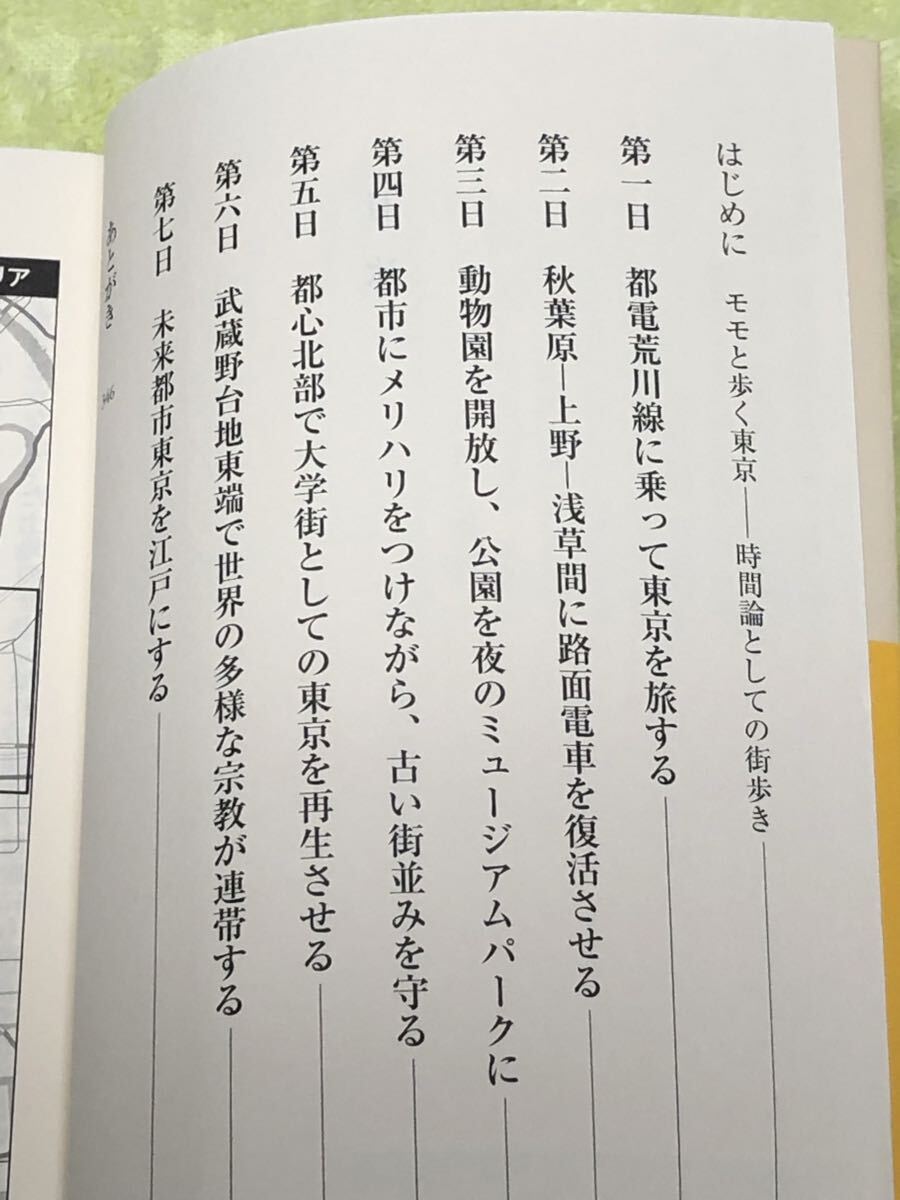 はじめに　モモと歩く東京――時間論としての街歩き
第一日　都電荒川線に乗って東京を旅する
第二日　秋葉原―上野―浅草間に路面電車を復活させる
第三日　動物園を開放し、公園を夜のミュージアムパークに
第四日　都市にメリハリをつけながら、古い街並みを守る
第五日　都心北部で大学街としての東京を再生させる
第六日　武蔵野台地東端で世界の多様な宗教が連帯する
第七日　未来都市東京を江戸にする
あとがき　346
リア